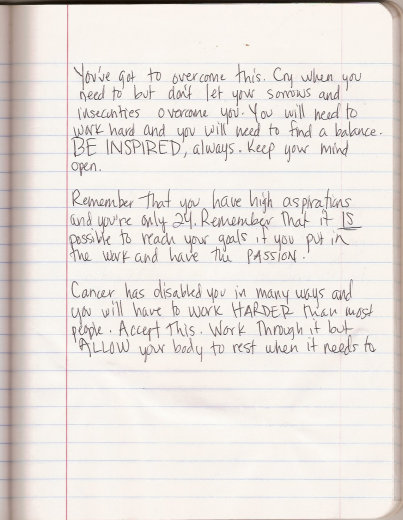 You've got to overcome this. Cry when you
need to but don't let your sorrows and
insecurities overcome you. You will need to
work hard and you will need to find a balance.
BE INSPIRED, always. Keep your mind
open.
Remember that you have high aspirations
and you're only 24. Remember that it IS
possible to reach your goals if you put in
the work and have the PASSION.
Cancer has disabled you in many ways and
you will have to work HARDER than most
people. Accept this. Work through it but
ALLOW your body to rest when it needs to